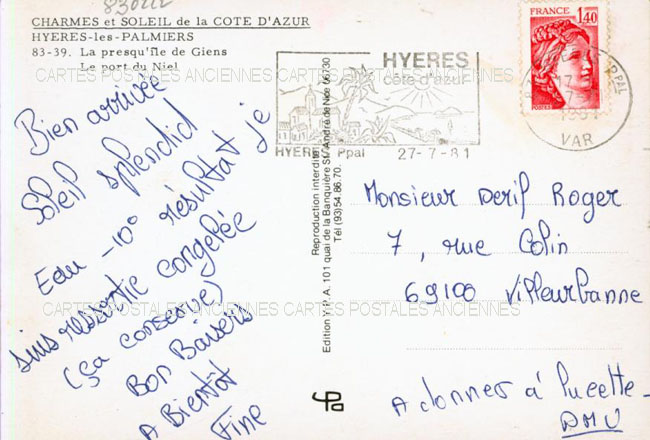 830222
CHARMES et SOLEIL de la COTE D'AZUR
HYERES-les-PALMIERS
83-39. La presqu'île de Giens
Le port du Niel
CARTES POSTALES ANCIENNES CARTES POSTALES ANCIENNES
Bien arrivée
Soleil splendid
Eau -10° résultat je
suis ressortie congelée
(ça conserve)
Bon Baisers
A Bientôt
Fine
CARTES POSTALES ANCIENNES CARTES POSTALES ANCIENNES
Edition Y.P.A. 101 quai de la Banquière St. André de Nice 06730
Reproduction interdite
Tél (93) 54.86.70.
HYERES
côte d'azur
HYERES Ppal 27-7-81
FRANCE
1,40
POSTES
PPAL
VAR
Monsieur Derif Roger
7, rue Colin
69100 Villeurbanne
A donner à Lucette